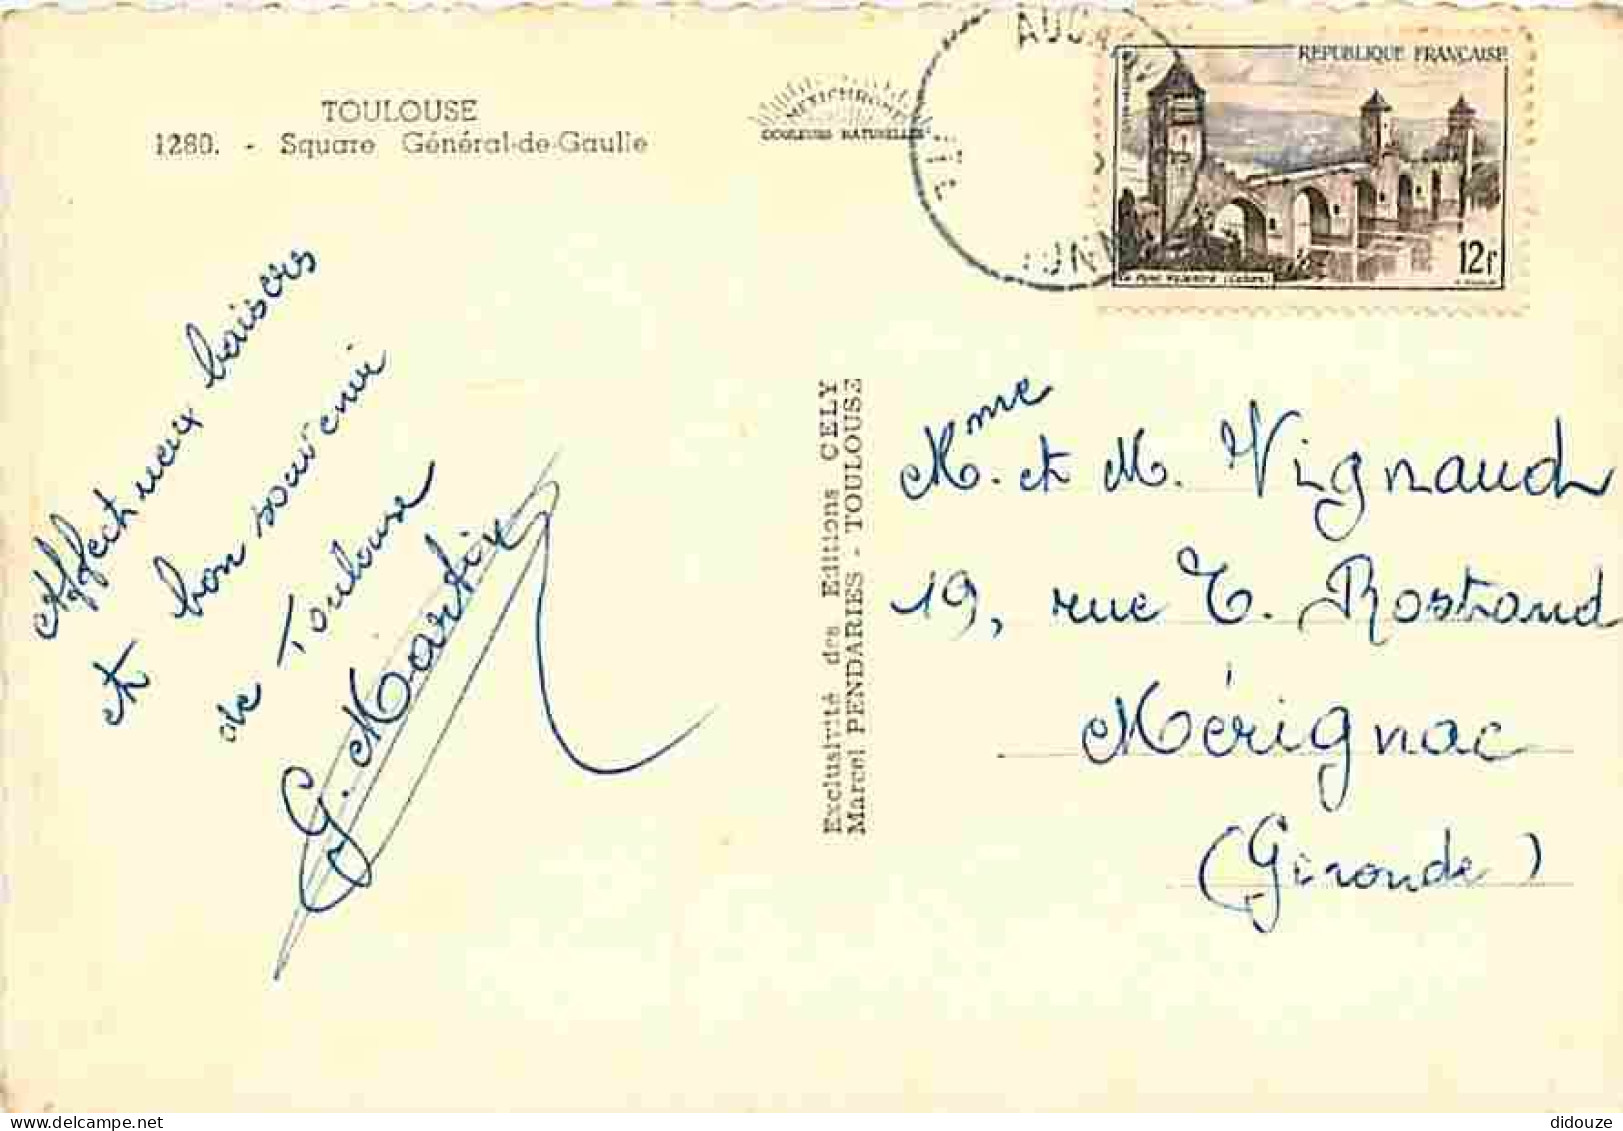 TOULOUSE
1280. - Square Général-de-Gaulle
METICHROME
COULEURS NATURELLES
REPUBLIQUE FRANÇAISE
12f
Le Pont Valentré (Cahors)
Affectueux baisers
et bon souvenir
de Toulouse
G. Martin
Exclusivité des Editions CELY
Marcel PENDARIES - TOULOUSE
Mme et M. Vignaud
19, rue E. Rostand
Mérignac
(Gironde)
delcampe.net
didouze